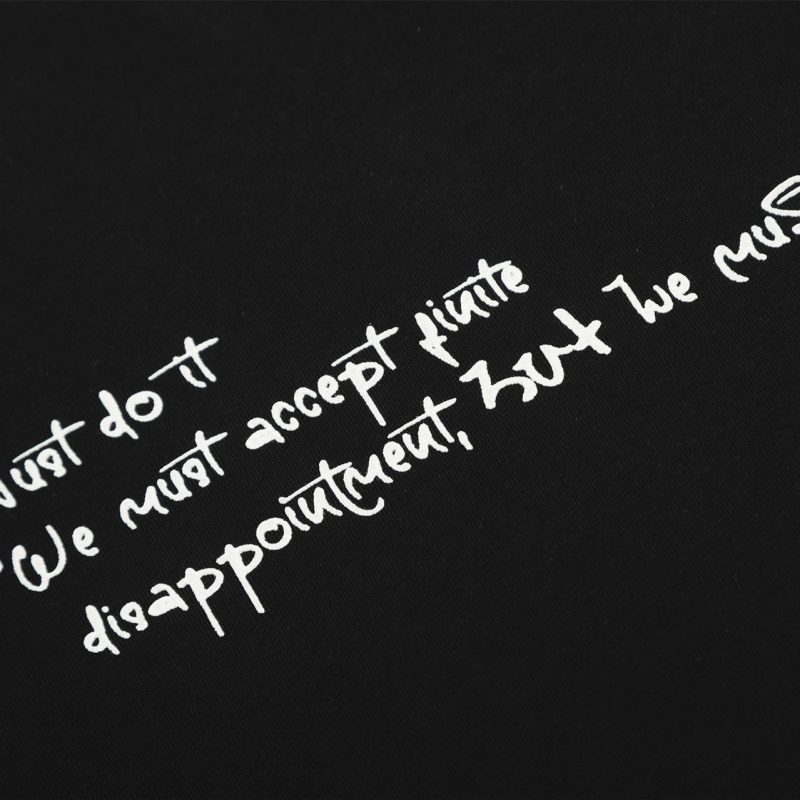 Just do it
We must accept finite
disappointment, but we must